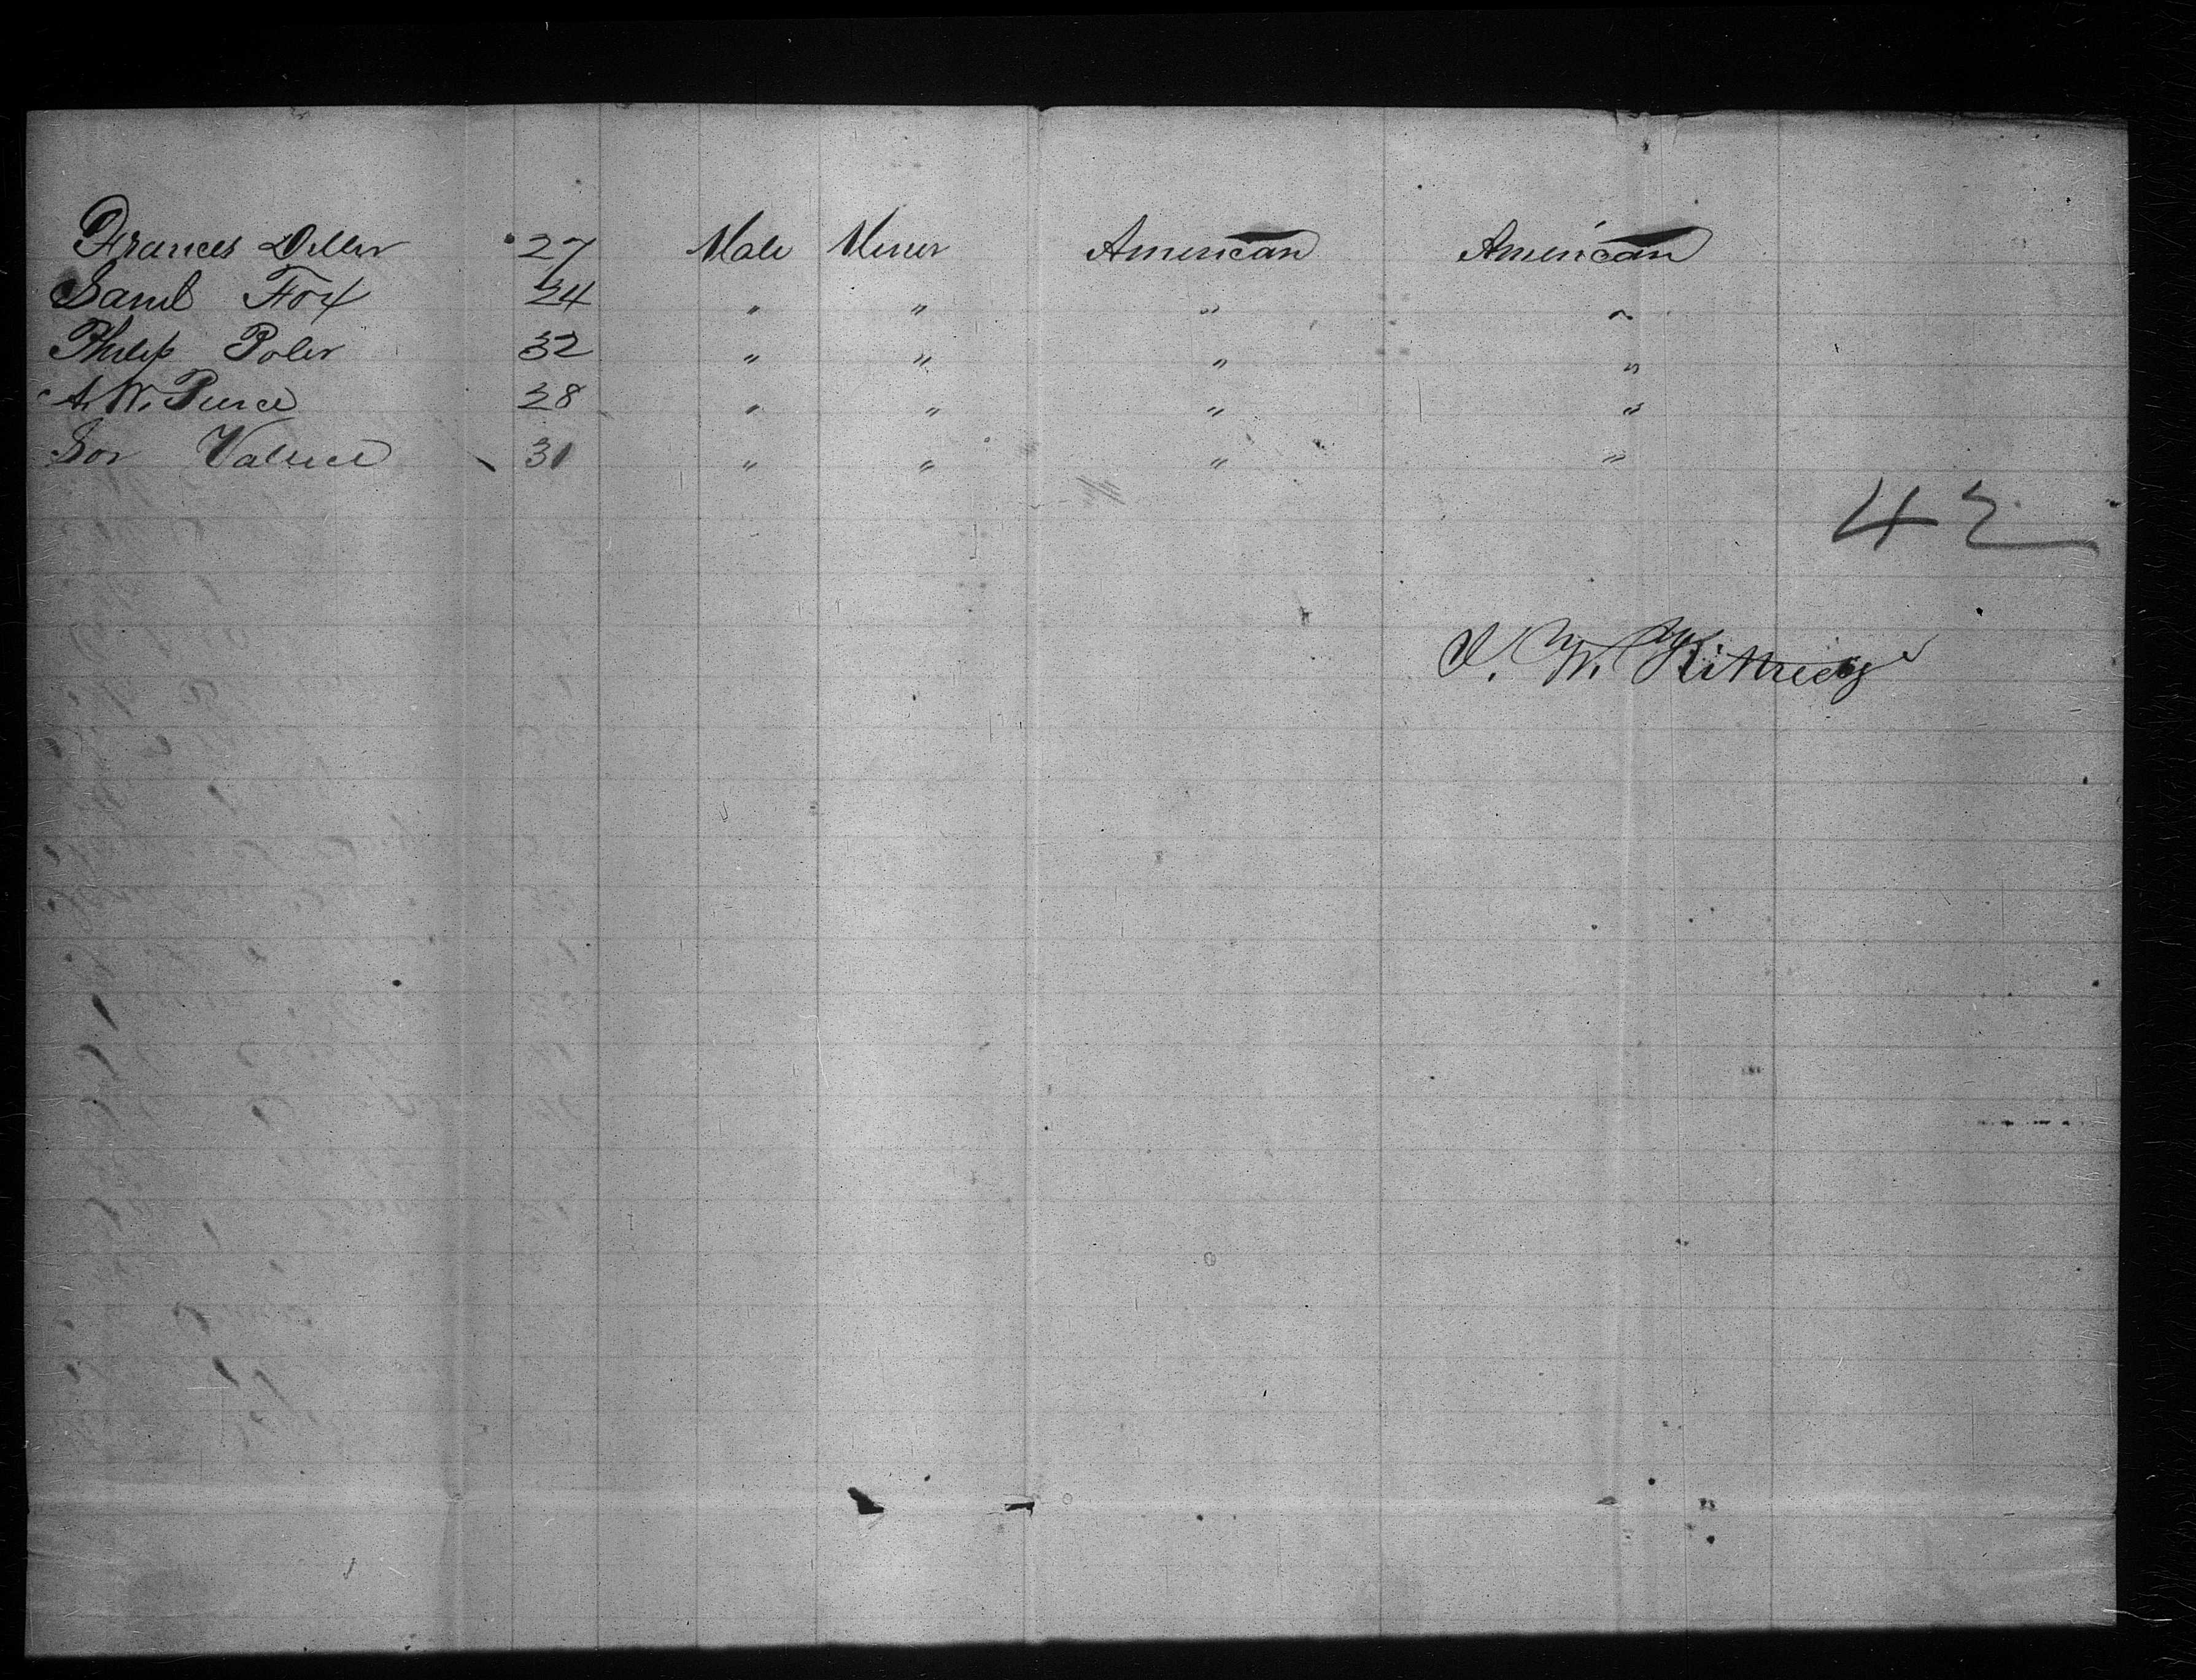 Frances Diller 27 Male Miner American American
Saml Fox 24 " " " "
Philip Poler 32 " " " "
A. W. Pierce 28 " " " "
31 " " " "
42
W. Kittredge